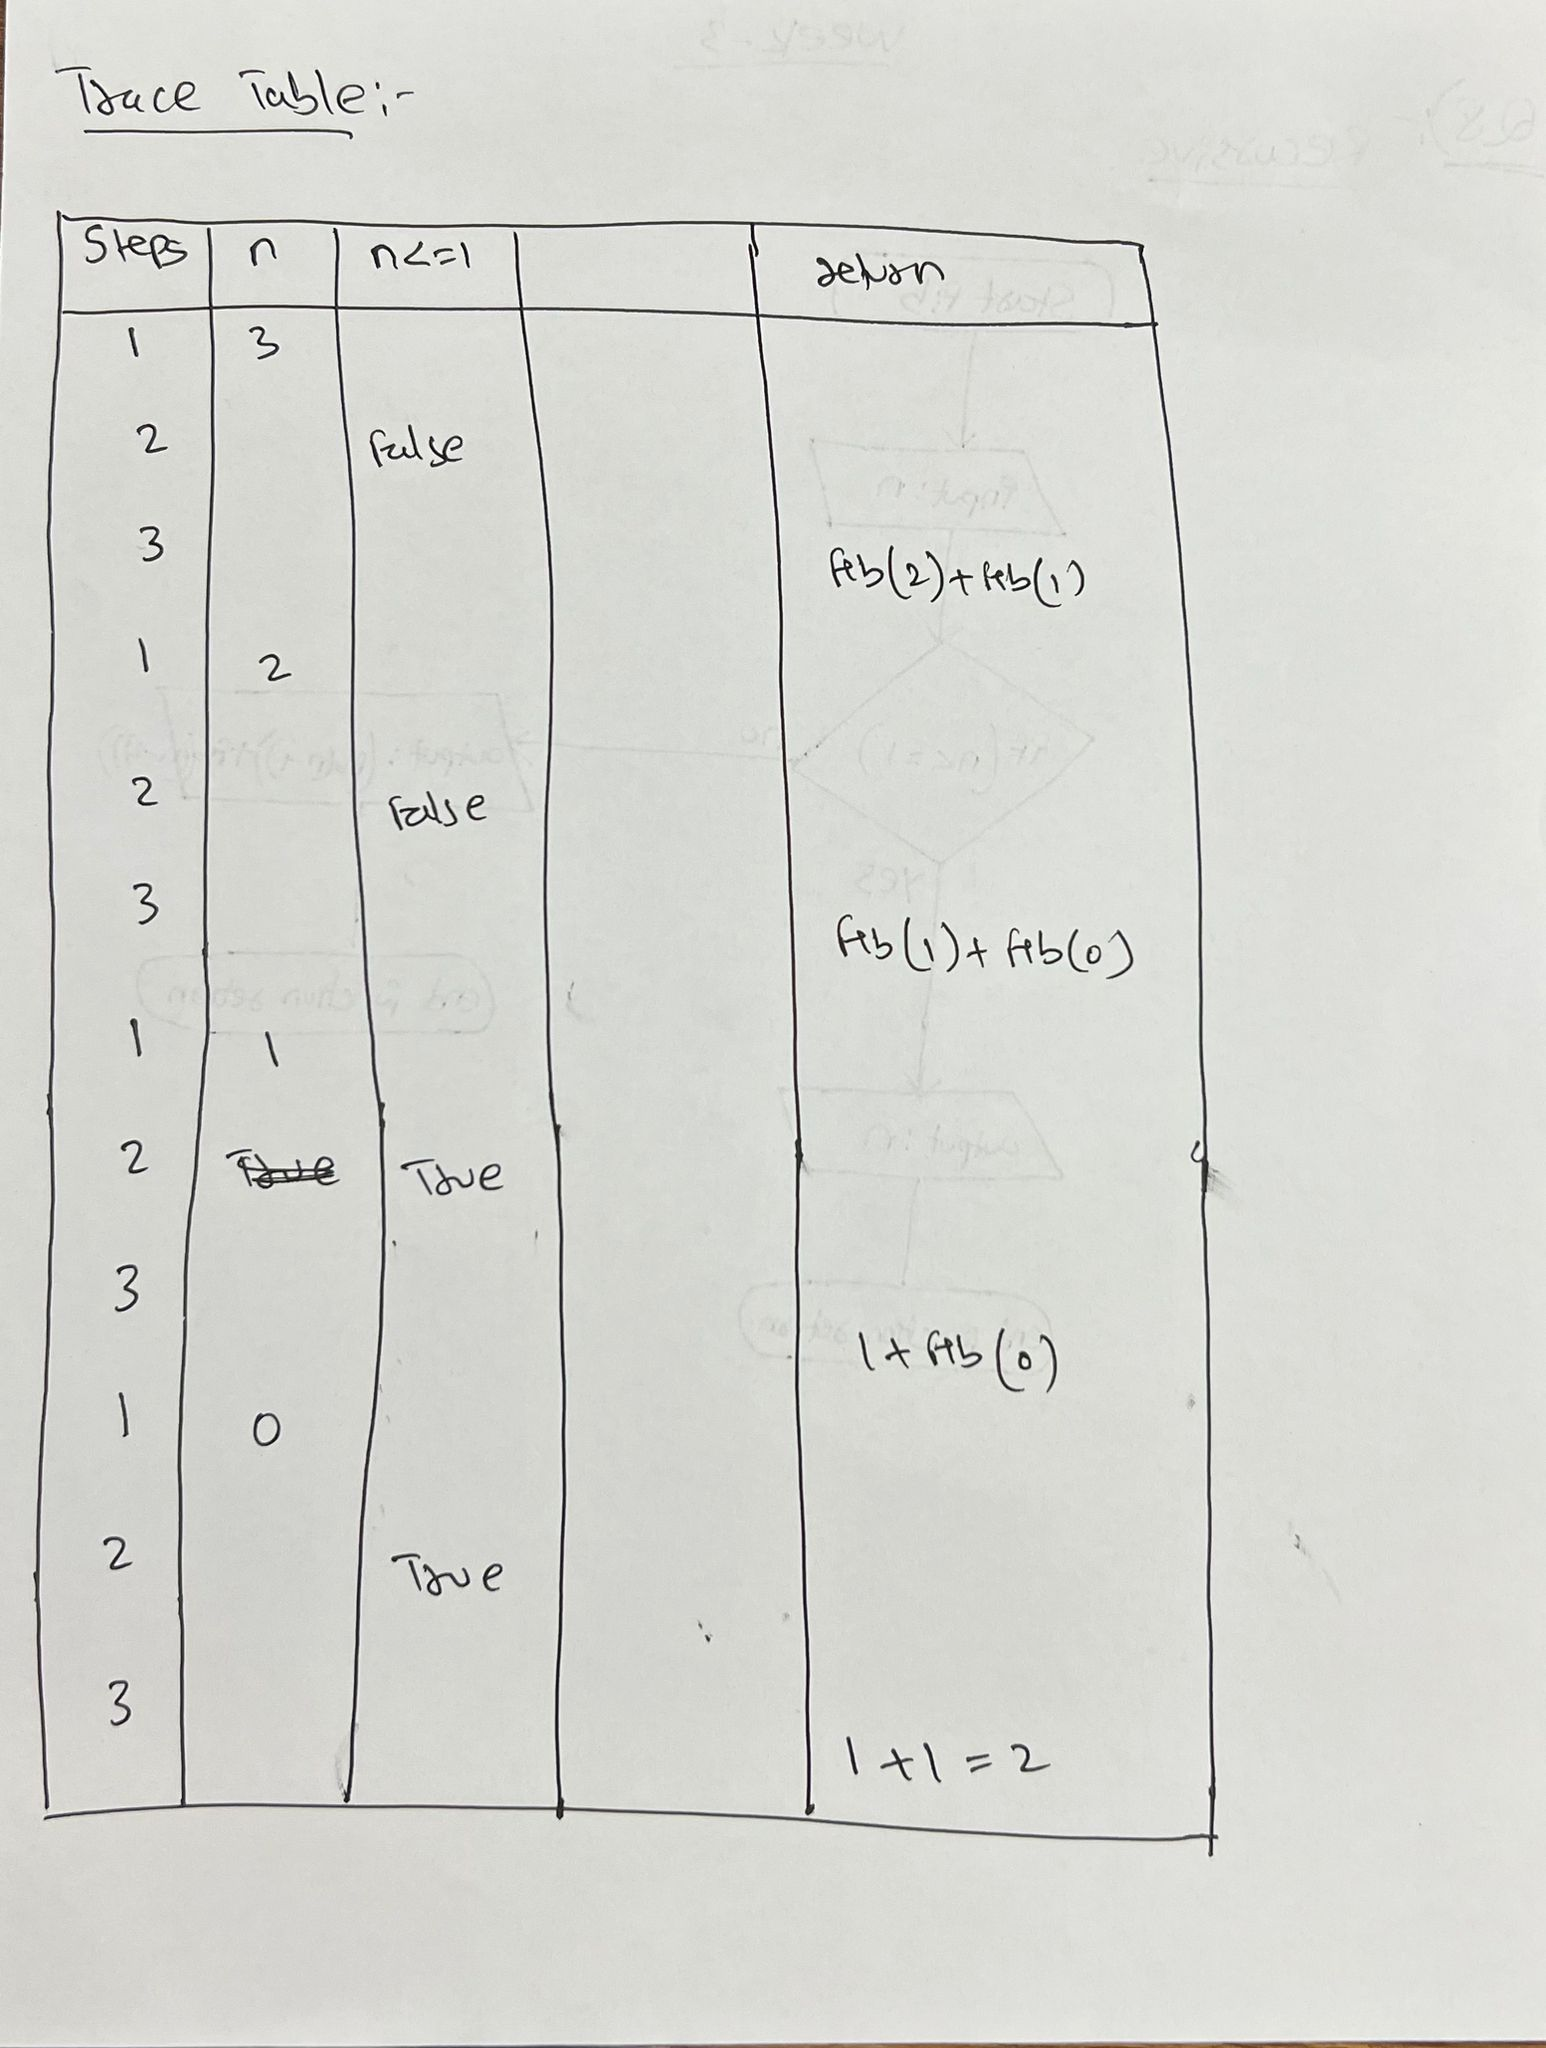 Trace Table:-
Steps n n<=1 return
1 3
2 False
3 fib(2)+fib(1)
1 2
2 False
3 fib(1)+fib(0)
1 1
2 True True
3 1+fib(0)
1 0
2 True
3 1+1=2